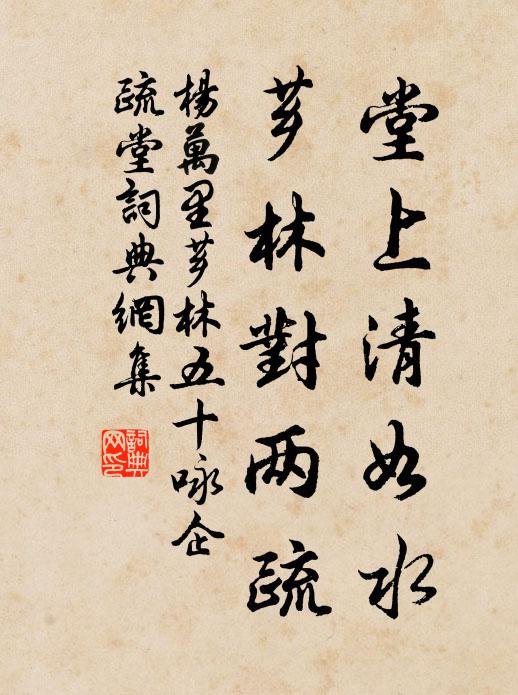 堂上清如水
芗林對两疏
楊萬里芗林五十咏企
疏堂詞典網集
詞典
网印